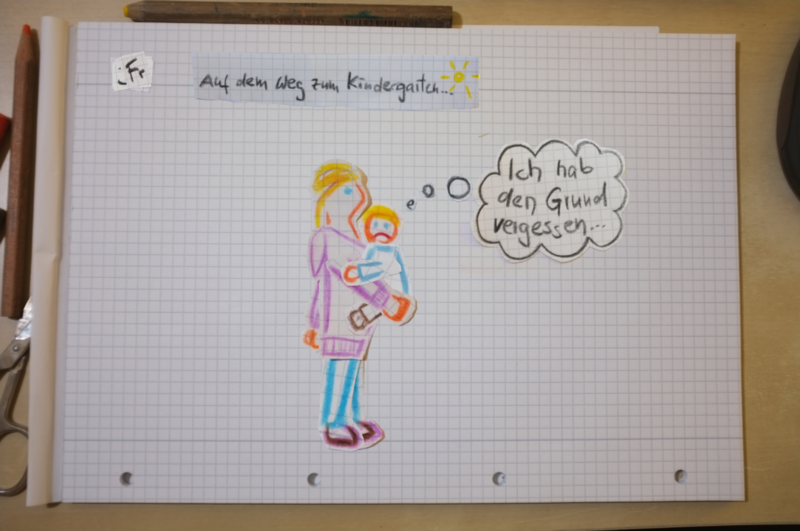 :Fr
Auf dem Weg zum Kindergarten...
Ich hab
den Grund
vergessen...